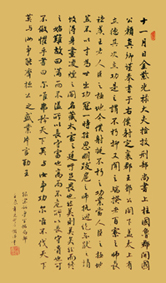 十一月日金紫光祿大夫檢校刑部尚書上柱國魯郡開國
公顏真卿謹奉書于右僕射定襄郡王郭公閣下蓋太上有
立德其次有立功是之謂不朽抑又聞之端揆者百寮之師長
諸侯王者人臣之極地今僕射挺不朽之功業當人臣之極地
豈不以才為世出功冠一時挫思明跋扈之師抗迴紇無厭之請
故得身畫凌煙之閣名藏太室之廷吁足畏也然美則美矣而終
之始難故曰滿而不溢所以長守富也高而不危所以長守貴也可
不儆懼乎書曰爾唯弗矜天下莫與汝爭功爾唯不伐天下
莫與汝爭能以齊桓公之盛業片言勤王